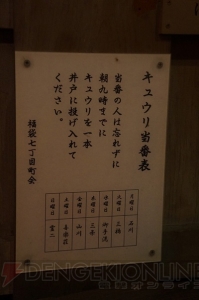 キュウリ当番表
当番の人は忘れずに
朝九時までに
キュウリを一本
井戸に投げ入れて
ください。
福袋七丁目町会
月曜日 石川
火曜日 三橋
水曜日
木曜日 三条
金曜日 山川
土曜日
日曜日
DENGEKIONLINE
電撃オンライン